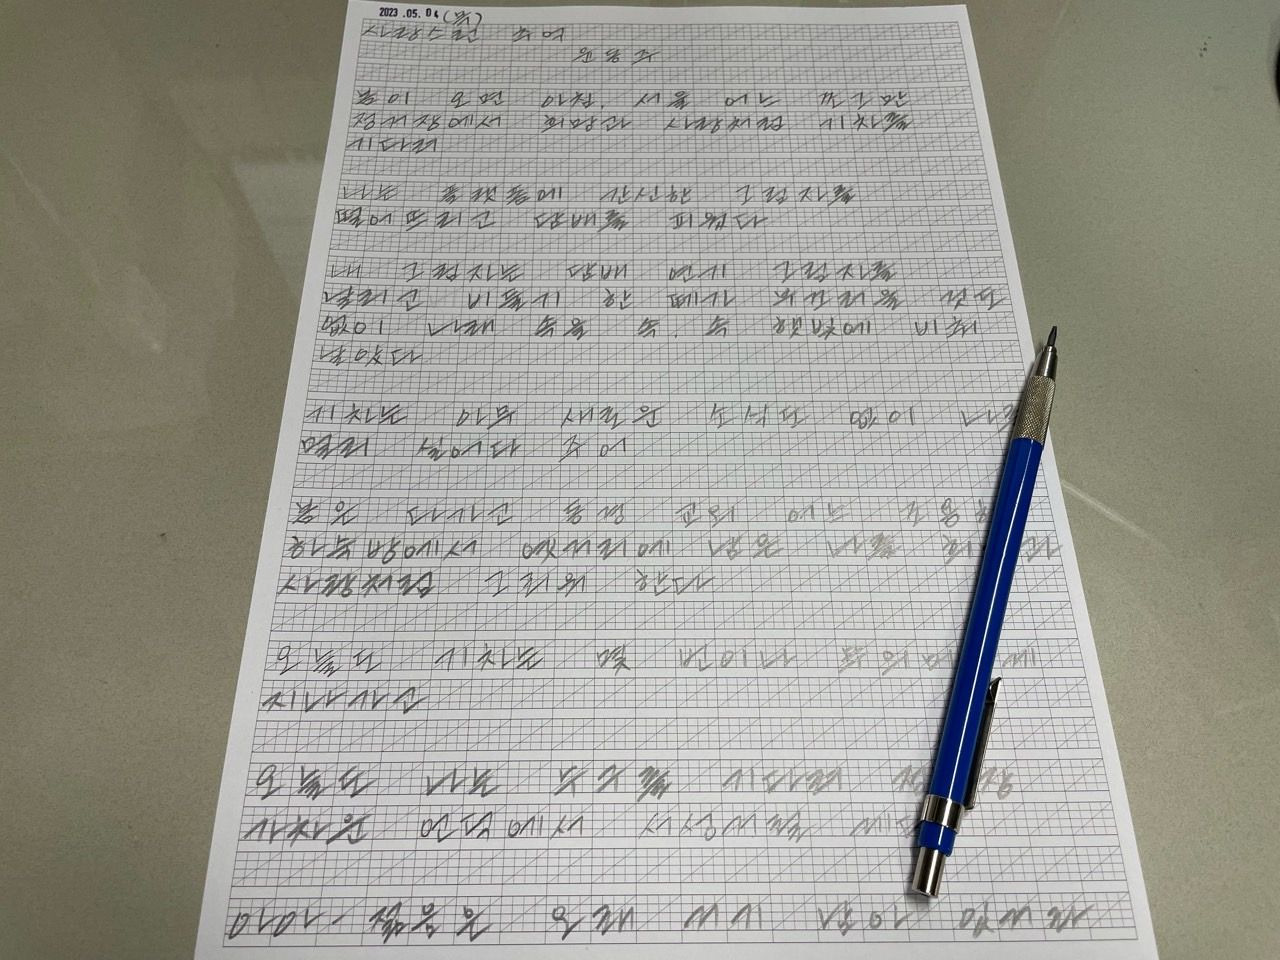 2023.05.04(목)
사랑스런 추억
윤동주
봄이 오던 아침, 서울 어느 쪼그만
정거장에서 희망과 사랑처럼 기차를
기다려
나는 플랫폼에 간신한 그림자를
떨어뜨리고 담배를 피웠다
내 그림자는 담배 연기 그림자를
날리고 비둘기 한 떼가 부끄러울 것도
없이 나래 속을 속, 속 햇빛에 비춰
날았다
기차는 아무 새로운 소식도 없이
멀리 실어다 주어
봄은 다 가고 동경 교외 어느
하숙방에서 옛거리에 남은 나를
사랑처럼 그리워 한다
오늘도 기차는 몇 번이나
지나가고
오늘도 나는 누구를 기다려
가까운 언덕에서 서성거릴
아아- 젊음은 오래 거기 남아 있거라